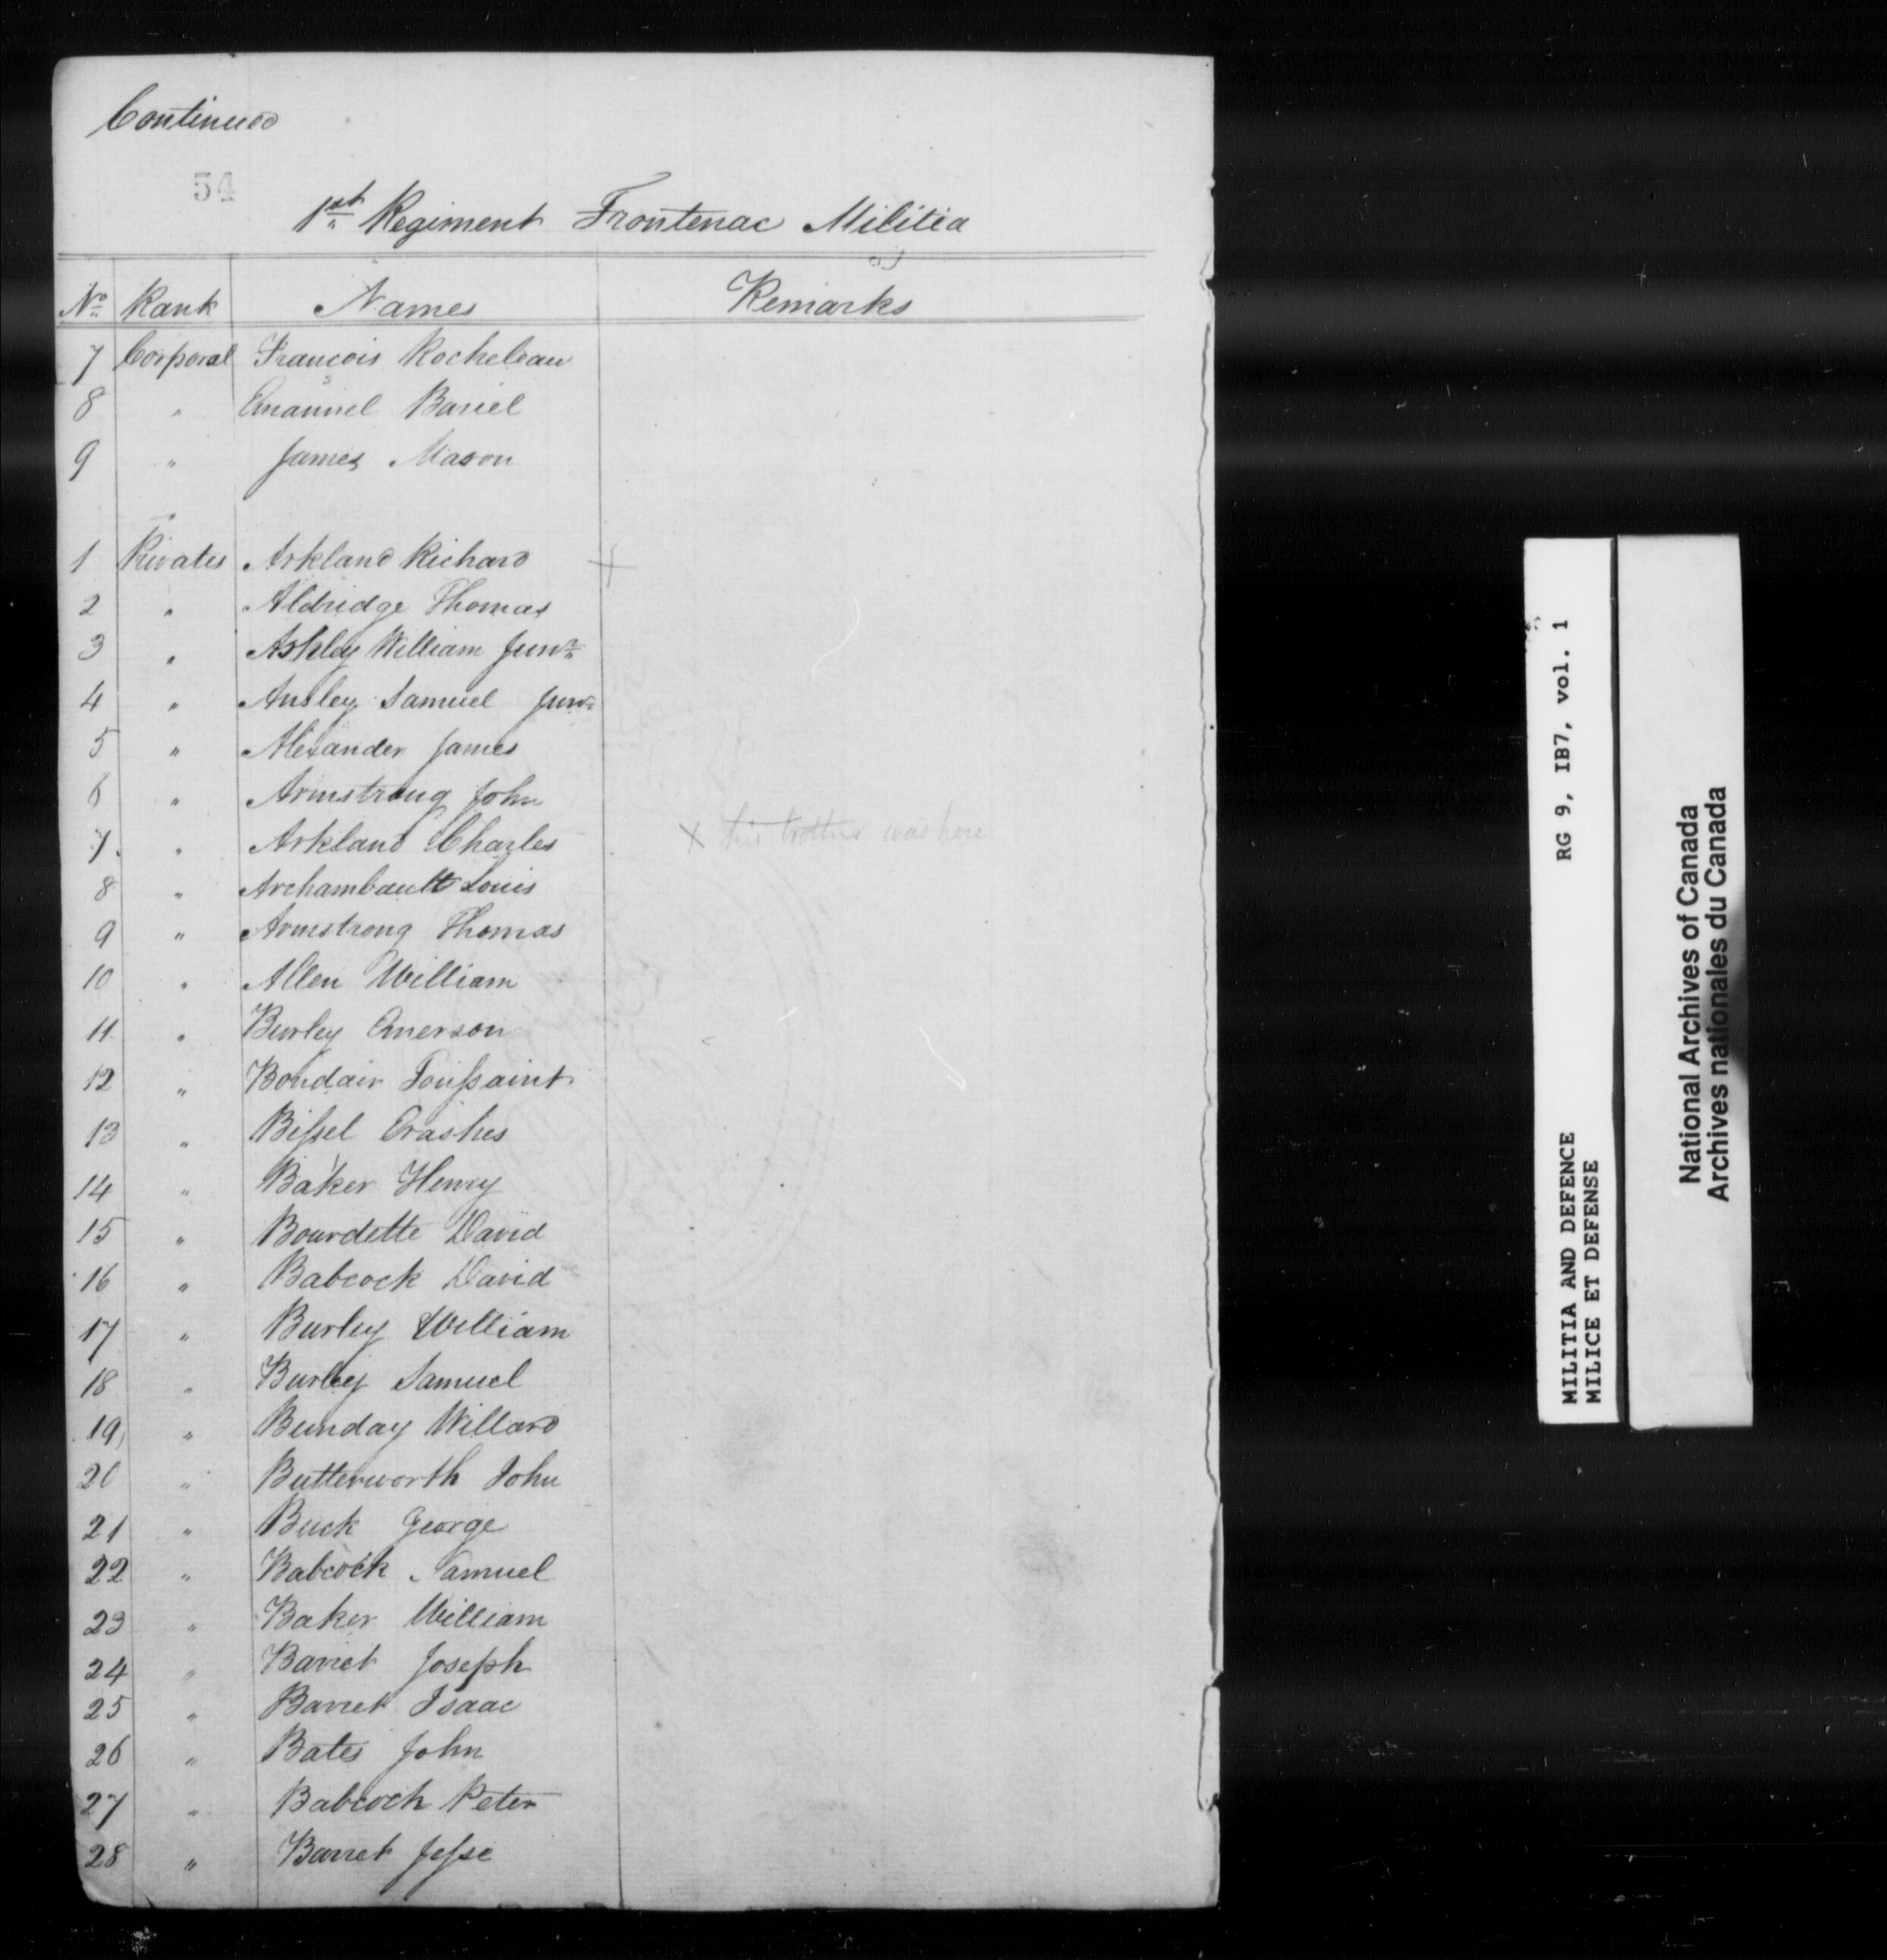 Continued
54
1st Regiment Frontenac Militia
No Rank Names Remarks
7 Corporal François Rocheleau
8 " Emanuel Bariel
9 " James Mason
1 Privates Arkland Richard +
2 " Aldridge Thomas
3 " Ashley William Junr
4 " Ansley Samuel Junr
5 " Alexander James
6 " Armstrong John
7 " Arkland Charles x his brother was here
8 " Archambault Louis
9 " Armstrong Thomas
10 " Allen William
11 " Burley Emerson
12 " Boudair Toussaint
13 " Bissel Erashes
14 " Baker Henry
15 " Bourdette David
16 " Babcock David
17 " Burley William
18 " Burley Samuel
19 " Bunday Willard
20 " Butterworth John
21 " Buck George
22 " Babcock Samuel
23 " Baker William
24 " Barret Joseph
25 " Barret Isaac
26 " Bates John
27 " Babcock Peter
28 " Barret Jesse
MILITIA AND DEFENCE RG 9, IB7, vol. 1
MILICE ET DEFENSE
National Archives of Canada
Archives nationales du Canada